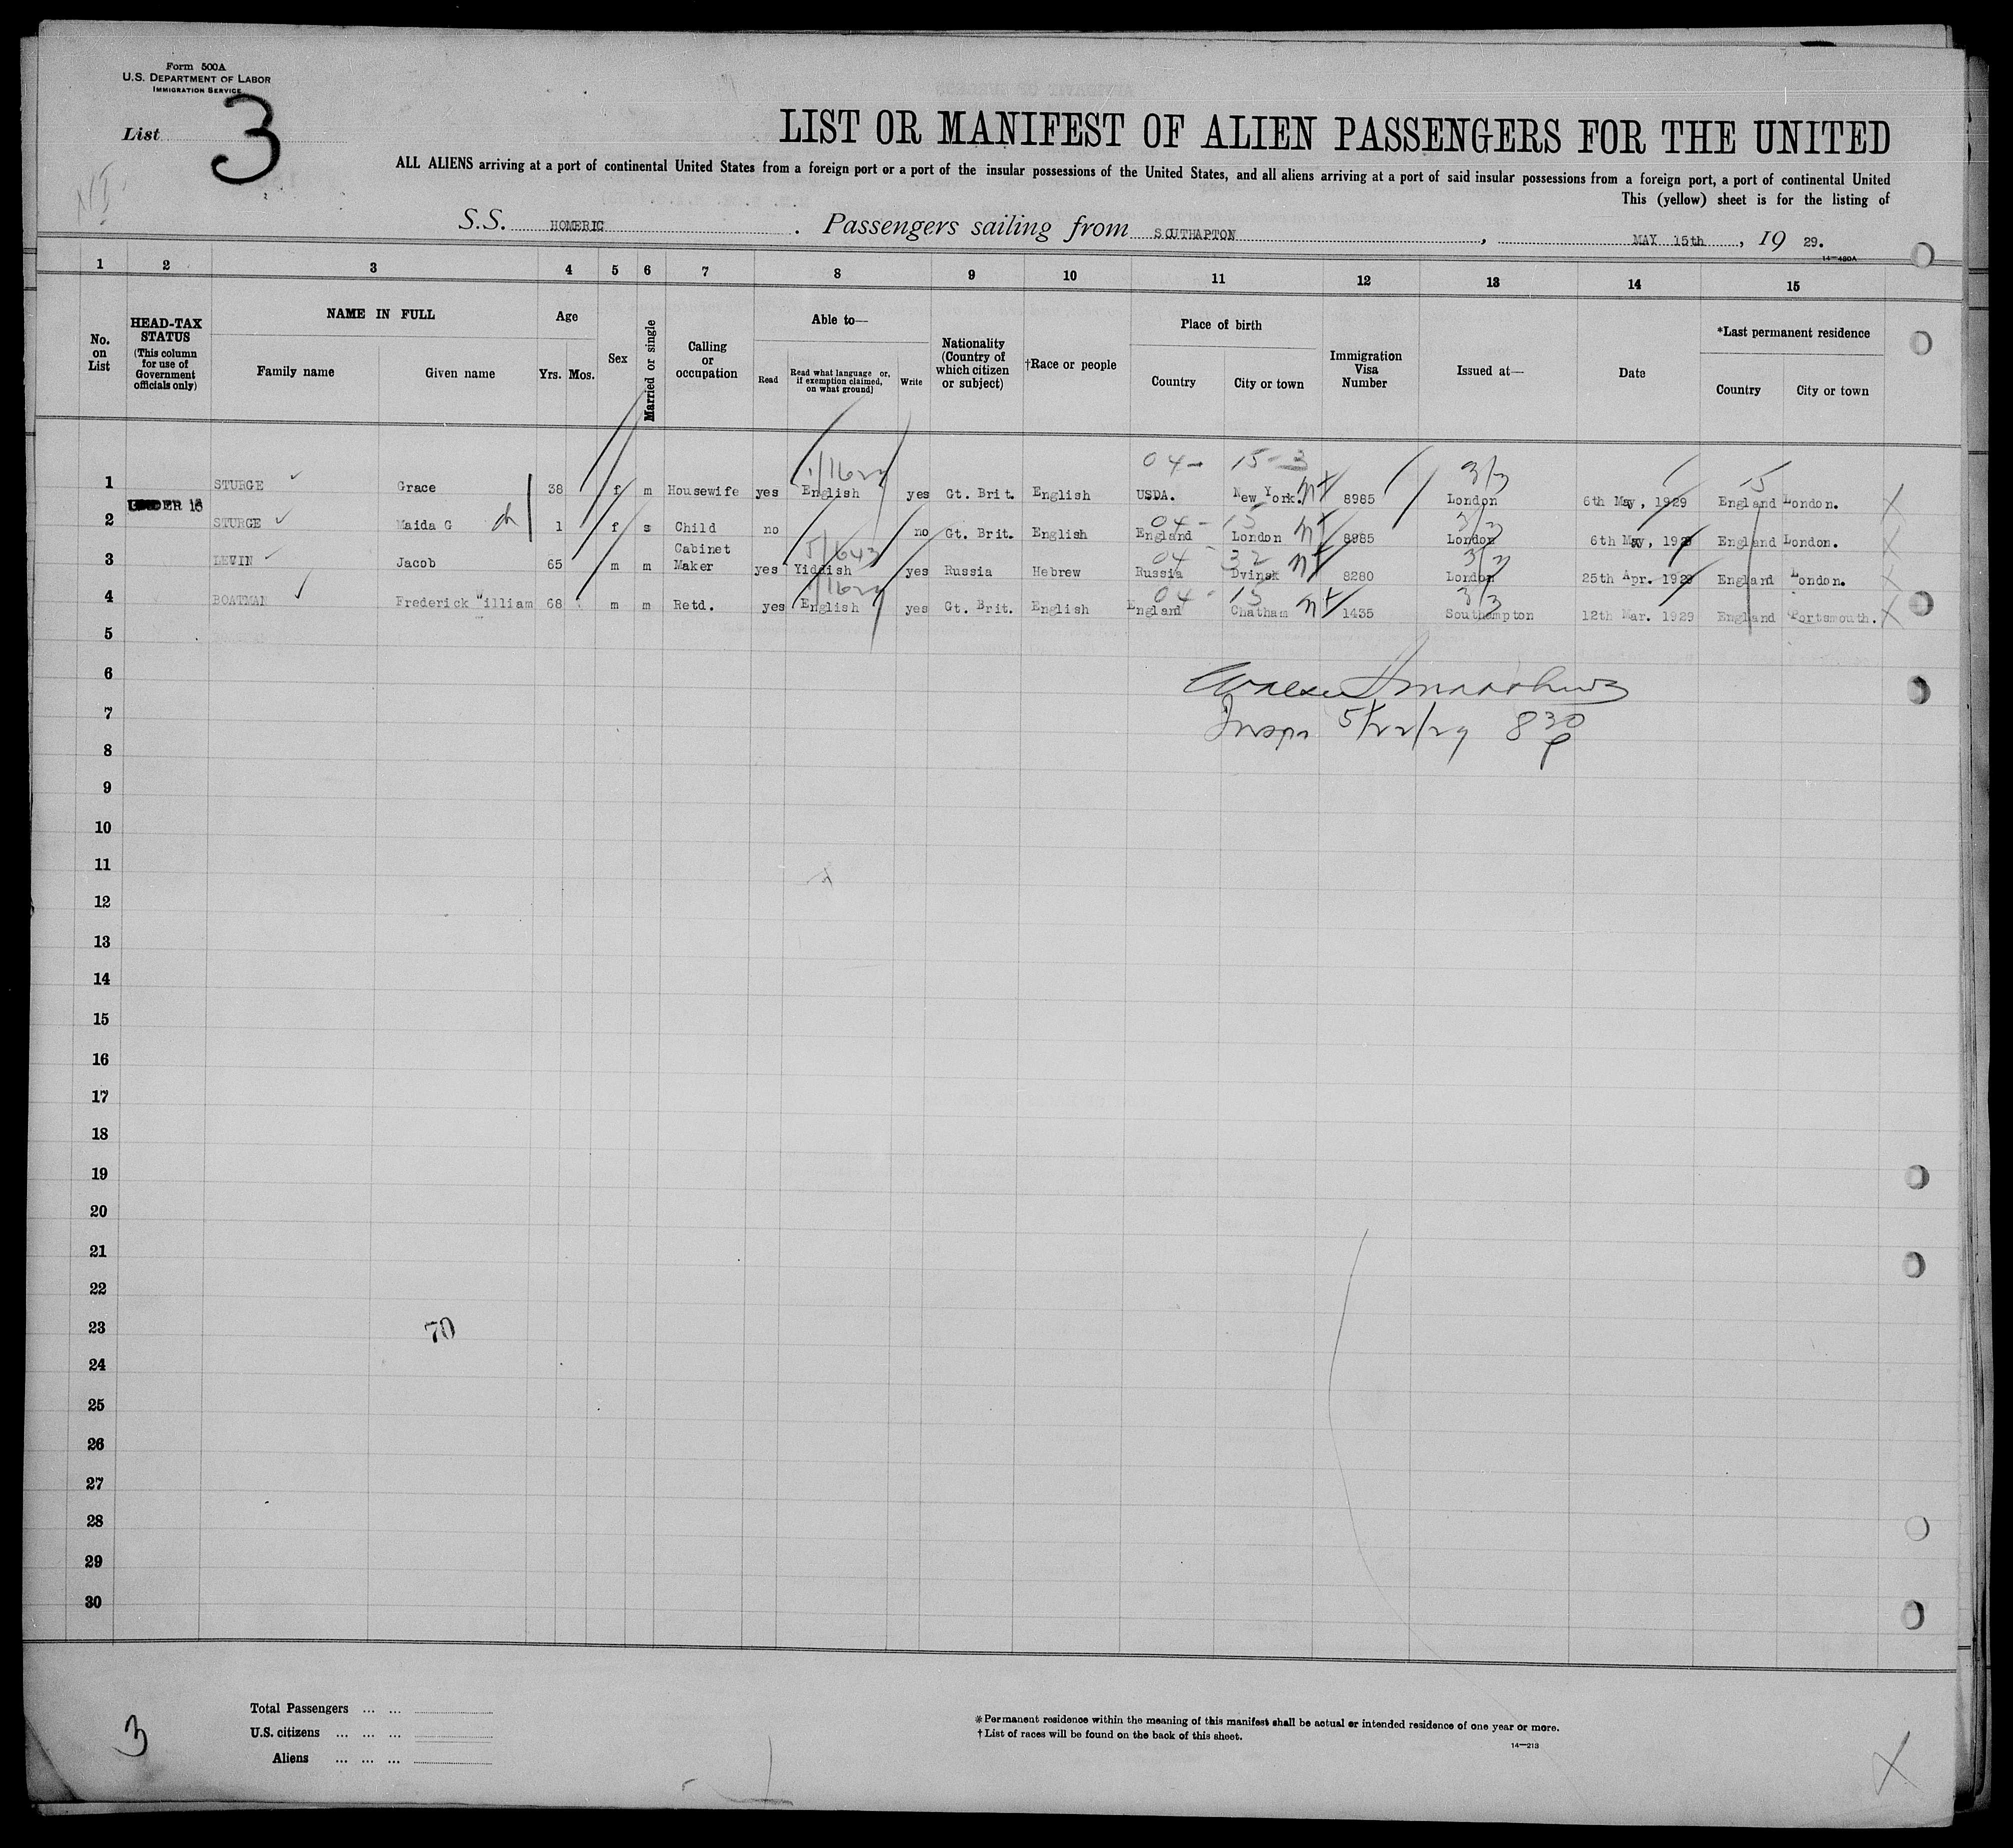 Form 500A
U.S. DEPARTMENT OF LABOR
IMMIGRATION SERVICE
List 3
LIST OR MANIFEST OF ALIEN PASSENGERS FOR THE UNITED
ALL ALIENS arriving at a port of continental United States from a foreign port or a port of the insular possessions of the United States, and all aliens arriving at a port of said insular possessions from a foreign port, a port of continental United
This (yellow) sheet is for the listing of
S.S. HOMERIC . Passengers sailing from SOUTHAPTON , MAY 15th , 19 29.
14—480A
1 2 3 4 5 6 7 8 9 10 11 12 13 14 15
No. on List
HEAD-TAX STATUS (This column for use of Government officials only)
NAME IN FULL
Family name Given name
Age
Yrs. Mos.
Sex
Married or single
Calling or occupation
Able to—
Read
Read what language or, if exemption claimed, on what ground)
Write
Nationality (Country of which citizen or subject)
†Race or people
Place of birth
Country City or town
Immigration Visa Number
Issued at—
Date
*Last permanent residence
Country City or town
04- 15-3 3/3 15
1 STURGE Grace 38 f m Housewife yes English yes Gt. Brit. English USDA. New York. 8985 London 6th May, 1929 England London.
UNDER 16
04 - 15 3/3
2 STURGE Maida G ch 1 f s Child no no Gt. Brit. English England London 8985 London 6th May, 1929 England London.
04 - 32 3/3
3 LEVIN Jacob 65 m m Cabinet Maker yes Yiddish yes Russia Hebrew Russia Dvinsk 8280 London 25th Apr. 1929 England London.
04 - 15 3/3
4 BOATMAN Frederick William 68 m m Retd. yes English yes Gt. Brit. English England Chatham 1435 Southampton 12th Mar. 1929 England Portsmouth.
5
6
7
Inspr 5/22/29 8 30 P
8
9
10
11
12
13
14
15
16
17
18
19
20
21
22
23
70
24
25
26
27
28
29
30
3
Total Passengers ... ...
U.S. citizens ... ... ...
Aliens ... ... ...
*Permanent residence within the meaning of this manifest shall be actual or intended residence of one year or more.
†List of races will be found on the back of this sheet.
14—213
X